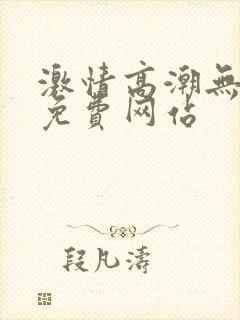 激情高潮無
免費网佔
段凡濤